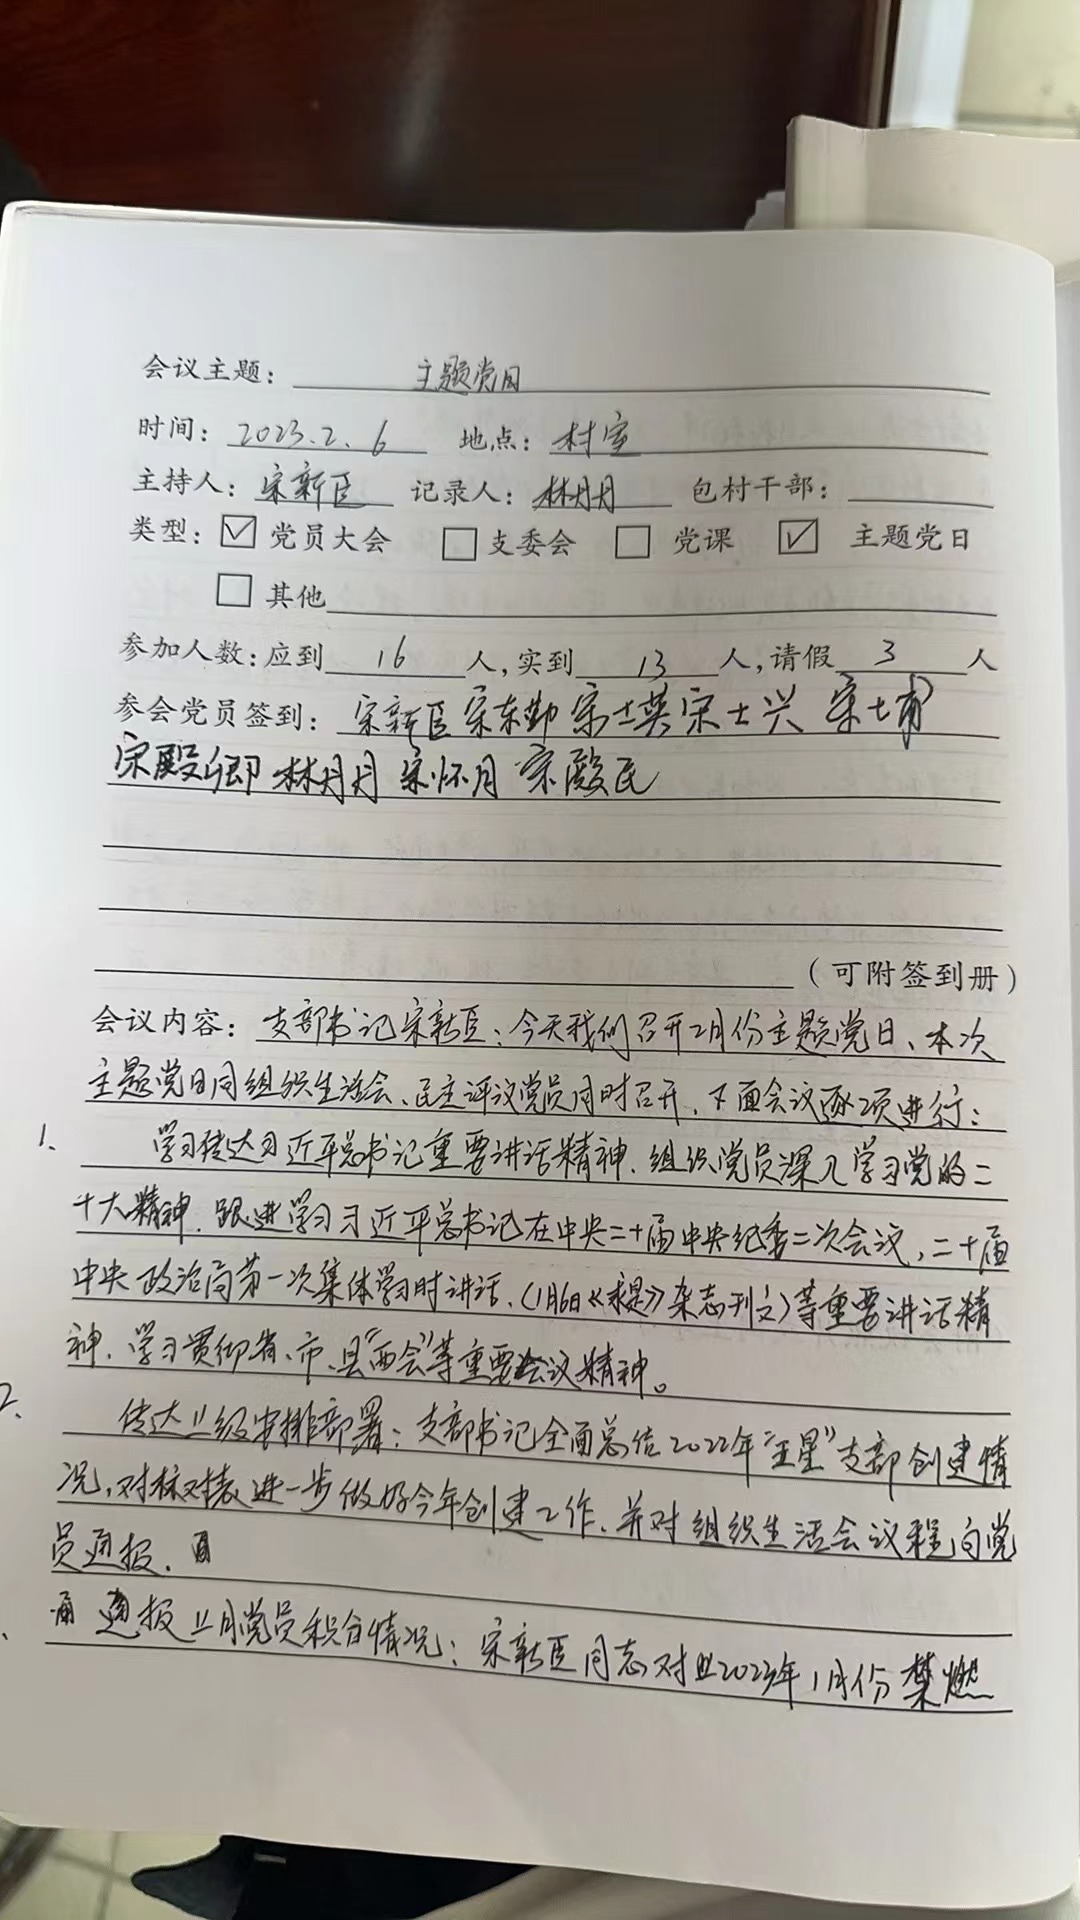 会议主题： 主题党日
时间：2023.2.6 地点：村室
主持人：宋新臣 记录人：林月月 包村干部：
类型：☑党员大会 □支委会 □党课 ☑主题党日
□其他
参加人数：应到 16 人，实到 13 人，请假 3 人
参会党员签到：宋新臣 宋东勤 宋士英 宋士兴 宋士甫
宋殿卿 林月月 宋怀月 宋殿民
（可附签到册）
会议内容：支部书记宋新臣：今天我们召开2月份主题党日、本次
主题党日同组织生活会、民主评议党员同时召开，下面会议逐项进行：
1、 学习传达习近平总书记重要讲话精神．组织党员深入学习党的二
十大精神．跟进学习习近平总书记在中央二十届中央纪委二次会议，二十届
中央政治局第一次集体学习时讲话、（1月6日《求是》杂志刊文）等重要讲话精
神．学习贯彻省、市、县“两会”等重要会议精神。
2、 传达上级安排部署：支部书记全面总结2022年“五星”支部创建情
况，对标对表进一步做好今年创建工作、并对组织生活会议程向党
员通报．
通报上月党员积分情况：宋新臣同志对2023年1月份禁燃